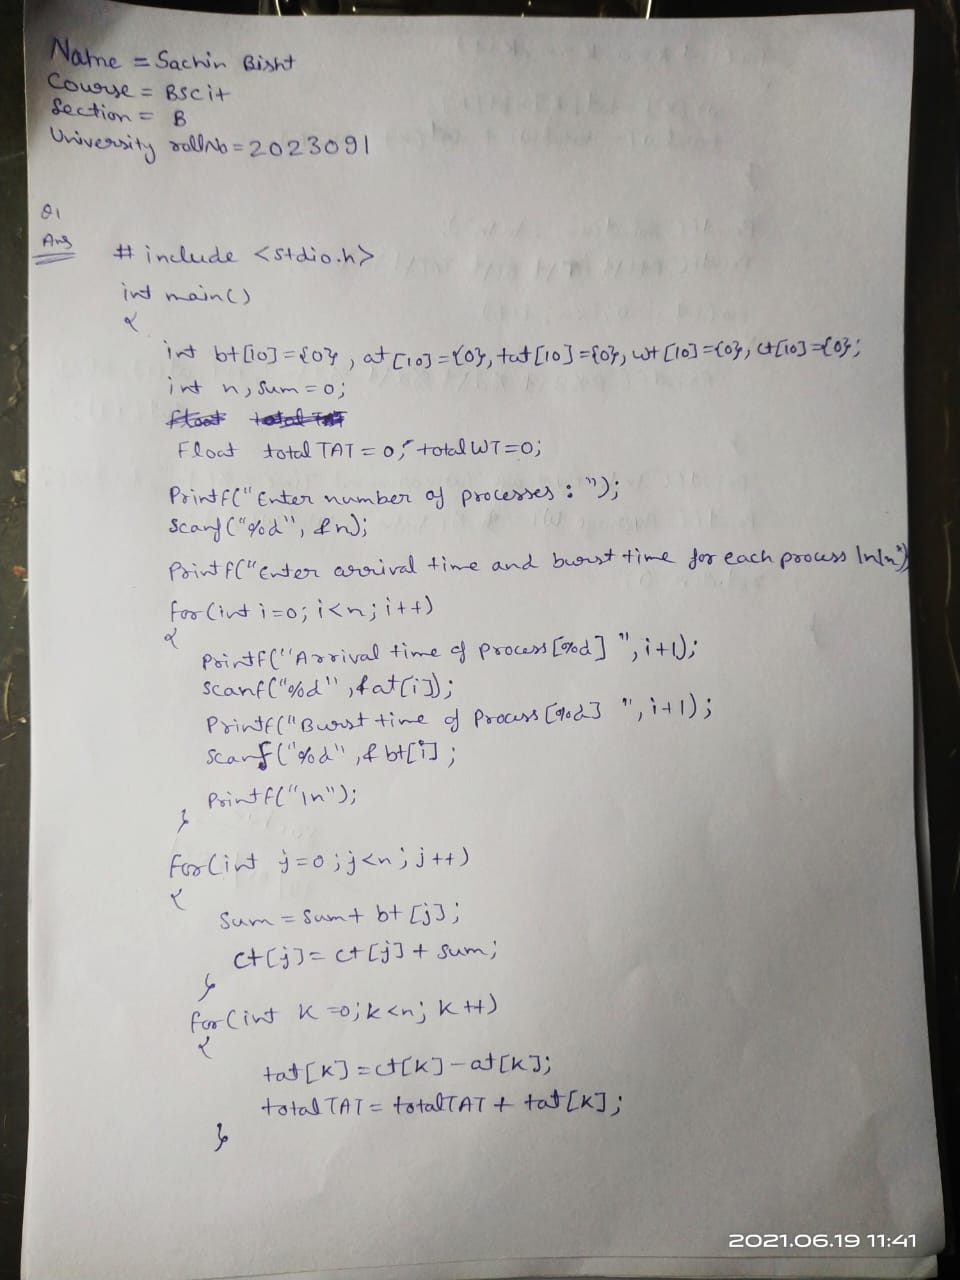 Name = Sachin Bisht
Course = BSCit
Section = B
University rollNo = 2023091
Q1
Ans
# include <stdio.h>
int main()
{
int bt[10]={0}, at[10]={0}, tat[10]={0}, wt[10]={0}, ct[10]={0};
int n, sum=0;
float total TAT
Float total TAT = 0, total WT=0;
Printf("Enter number of processes : ");
Scanf("%d", &n);
Printf("Enter arrival time and burst time for each process \n\n")
for(int i=0; i<n; i++)
{
Printf("Arrival time of Process[%d] ", i+1);
Scanf("%d", &at[i]);
Printf("Burst time of Process[%d] ", i+1);
Scanf("%d", &bt[i];
Printf("\n");
}
for(int j=0; j<n; j++)
{
Sum = Sum+ bt[j];
Ct[j]= ct[j] + sum;
}
for(int K=0; k<n; K++)
{
tat[K] = ct[K] - at[K];
total TAT = totalTAT + tat[K];
}
2021.06.19 11:41